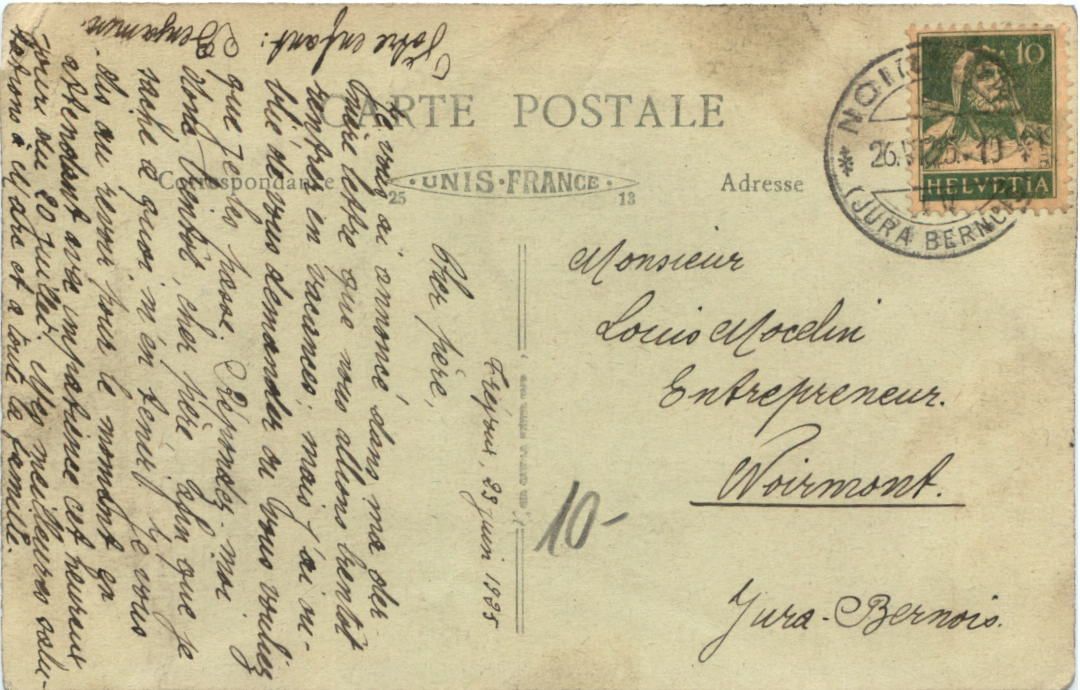 CARTE POSTALE
Correspondance
UNIS-FRANCE
25
13
Adresse
10
HELVETIA
26.VI.25.-10
(JURA BERNOIS)
Monsieur
Louis Mocelin
Entrepreneur.
Noirmont.
Jura-Bernois.
10-
Fréjus, 23 juin 1925
Cher père,
Je vous ai annoncé dans ma der-
nière lettre que nous allions bientôt
rentrer en vacances; mais j'ai ou-
blié de vous demander si vous vouliez
que je les passe. Répondez-moi
donc bientôt, cher père afin que je
sache à quoi m'en tenir. Je vous
dis au revoir pour le moment en
attendant avec impatience cet heureux
jour du 20 juillet. Mes meilleures salu-
tations à et à toute la famille.
Votre enfant:
Benjamin.